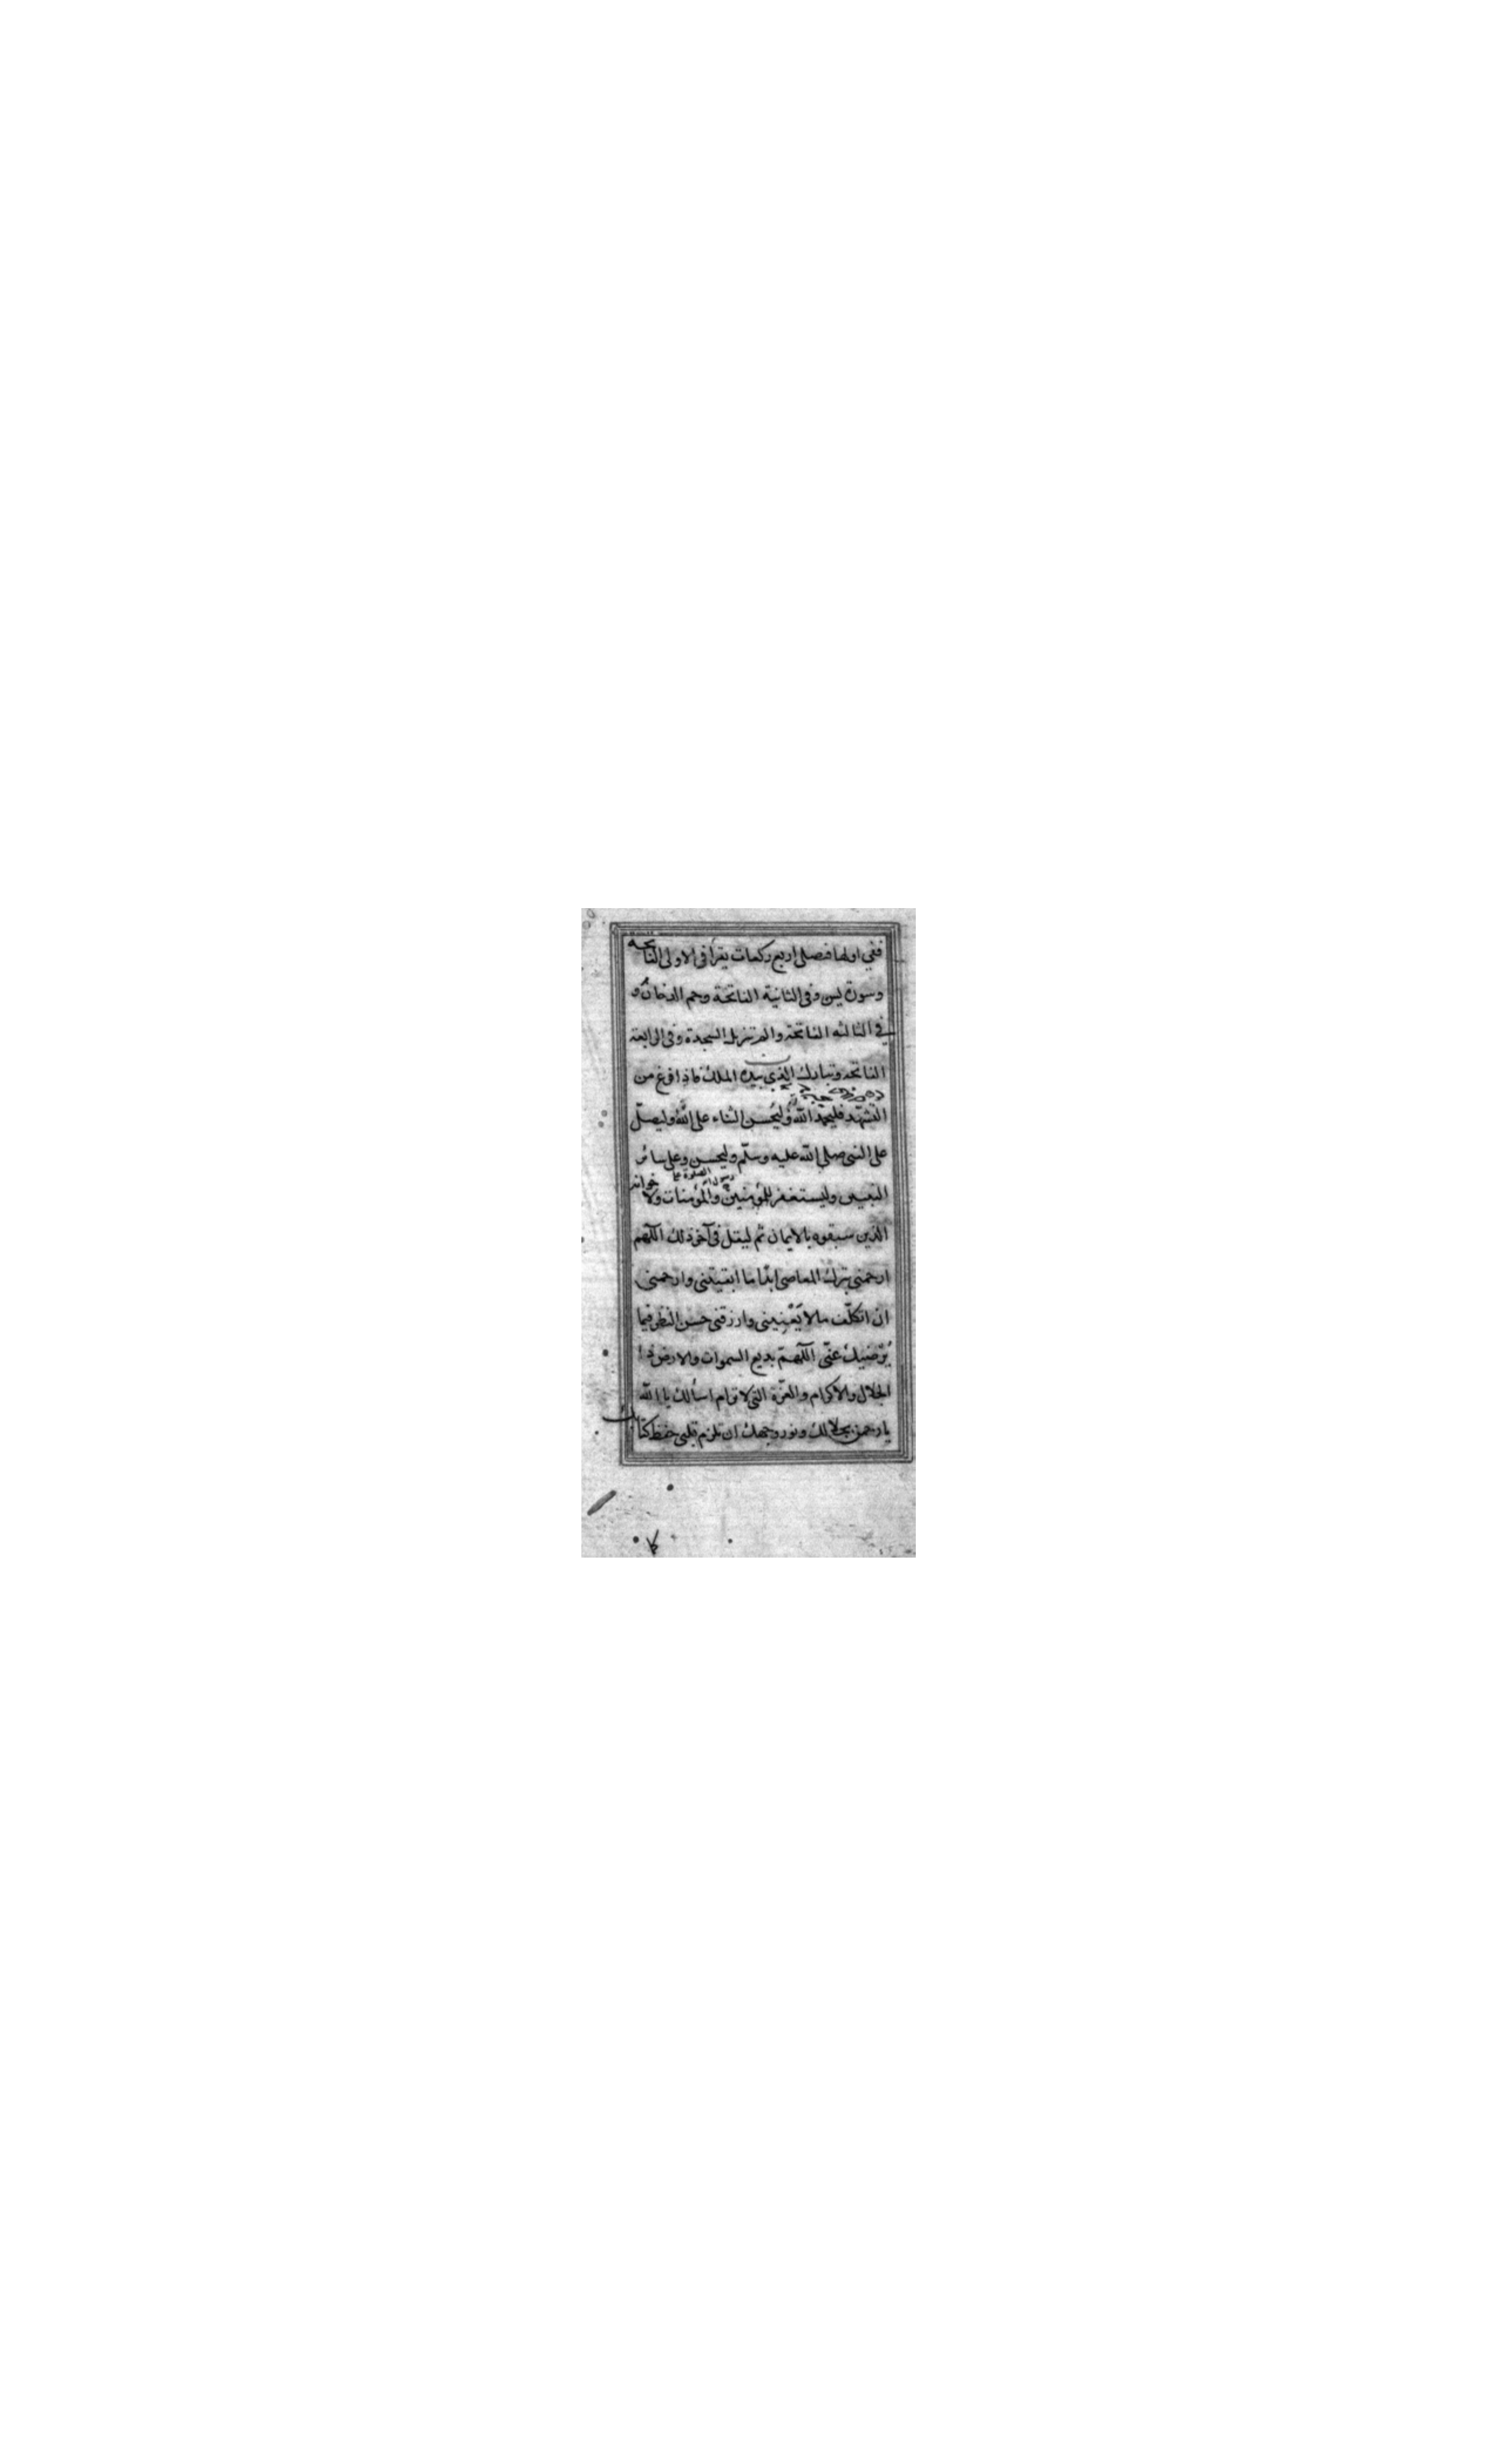 ففي اولها فيصلي اربع ركعات يقرا في الاولى الفاتحه
وسورة يس وفي الثانية الفاتحة وحم الدخان و
في الثالثه الفاتحة والم تنزيل السجدة وفي الرابعة
الفاتحه وتبارك الذي بيده الملك فاذا فرغ من
التشهّد فليحمد الله وليُحسن الثناء على الله وليصلّ
على النبي صلى الله عليه وسلّم وليحسن وعلى سائر
النبيين وليستغفر للمؤمنين والمؤمنات ولاخوانه
الذين سبقوه بالايمان ثم ليقل في آخر ذلك اللّهم
ارحمني بترك المعاصي ابدًا ما ابقيتني وارحمني
ان اتكلّف ما لا يَعْنِيني وارزقني حسن النظر فيما
يُرْضيك عنّي اللّهمّ بديع السموات والارض ذا
الجلال والاكرام والعزّة التي لا ترام اسألك يا الله
يا رحمن بجلالك ونور وجهك ان تلزم قلبي حفظ كتابك